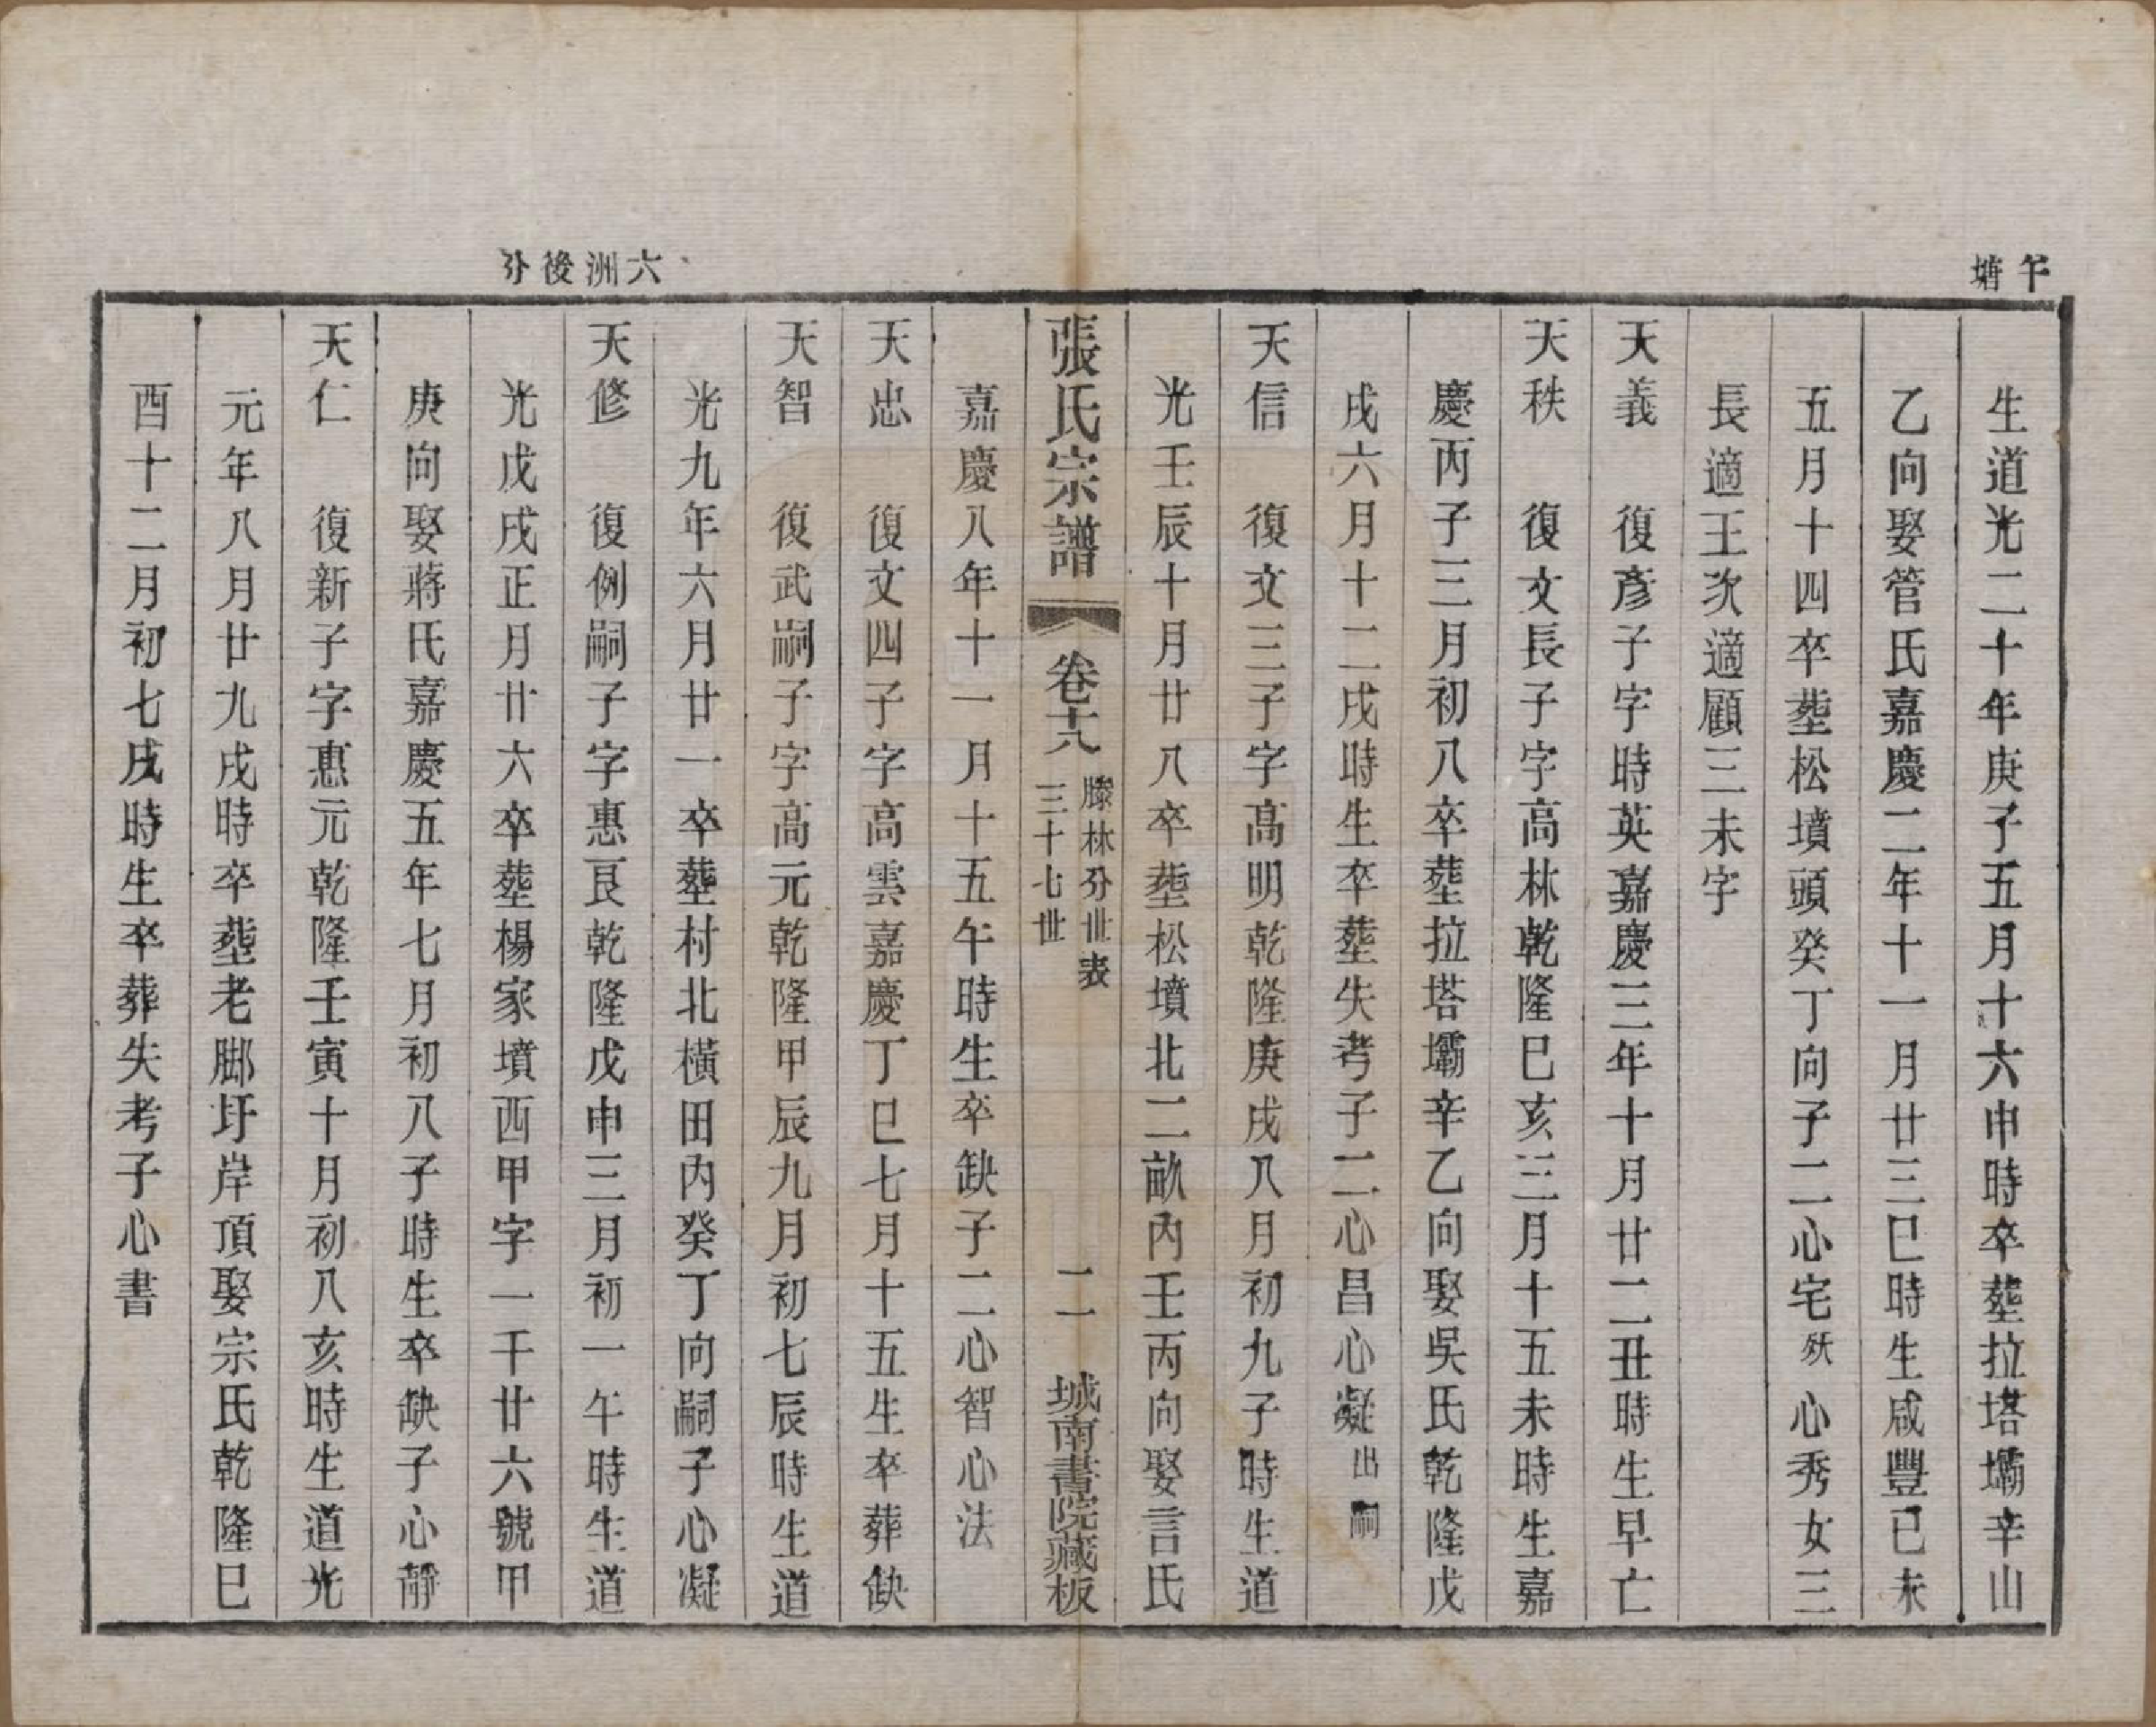 午塘
生道光二十年庚子五月十六申時卒塟拉塔壩辛山
乙向娶管氏嘉慶二年十一月廿三巳時生咸豐己未
五月十四卒塟松墳頭癸丁向子二心宅殀心秀女三
長適王次適顧三未字
天義　復彥子字時英嘉慶三年十月廿二丑時生早亡
天秩　復文長子字高林乾隆巳亥三月十五未時生嘉
慶丙子三月初八卒塟拉塔壩辛乙向娶吳氏乾隆戊
戌六月十二戌時生卒塟失考子二心昌心凝出嗣
天信　復文三子字高明乾隆庚戌八月初九子時生道
光壬辰十月廿八卒塟松墳北二畝內壬丙向娶言氏
張氏宗譜　卷十九　滕林分世表　三十七世　二　城南書院藏板
嘉慶八年十一月十五午時生卒缺子二心智心法
天忠　復文四子字高雲嘉慶丁巳七月十五生卒葬缺
天智　復武嗣子字高元乾隆甲辰九月初七辰時生道
光九年六月廿一卒塟村北橫田內癸丁向嗣子心凝
六洲後分
天修　復例嗣子字惠艮乾隆戊申三月初一午時生道
光戊戌正月廿六卒塟楊家墳西甲字一千廿六號甲
庚向娶蔣氏嘉慶五年七月初八子時生卒缺子心靜
天仁　復新子字惠元乾隆壬寅十月初八亥時生道光
元年八月廿九戌時卒塟老脚圩岸頂娶宗氏乾隆巳
酉十二月初七戌時生卒葬失考子心書